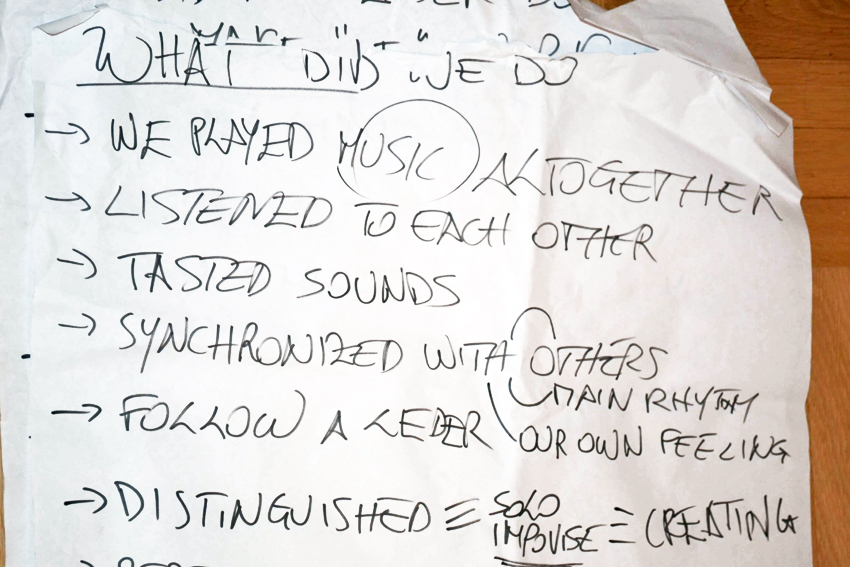 WHAT DID WE DO
→ WE PLAYED MUSIC ALTOGETHER
→ LISTENED TO EACH OTHER
→ TASTED SOUNDS
→ SYNCHRONIZED WITH OTHERS
MAIN RHYTM
→ FOLLOW A LEDER
OUR OWN FEELING
→ DISTINGUISHED = SOLO
IMPOVISE = CREATING